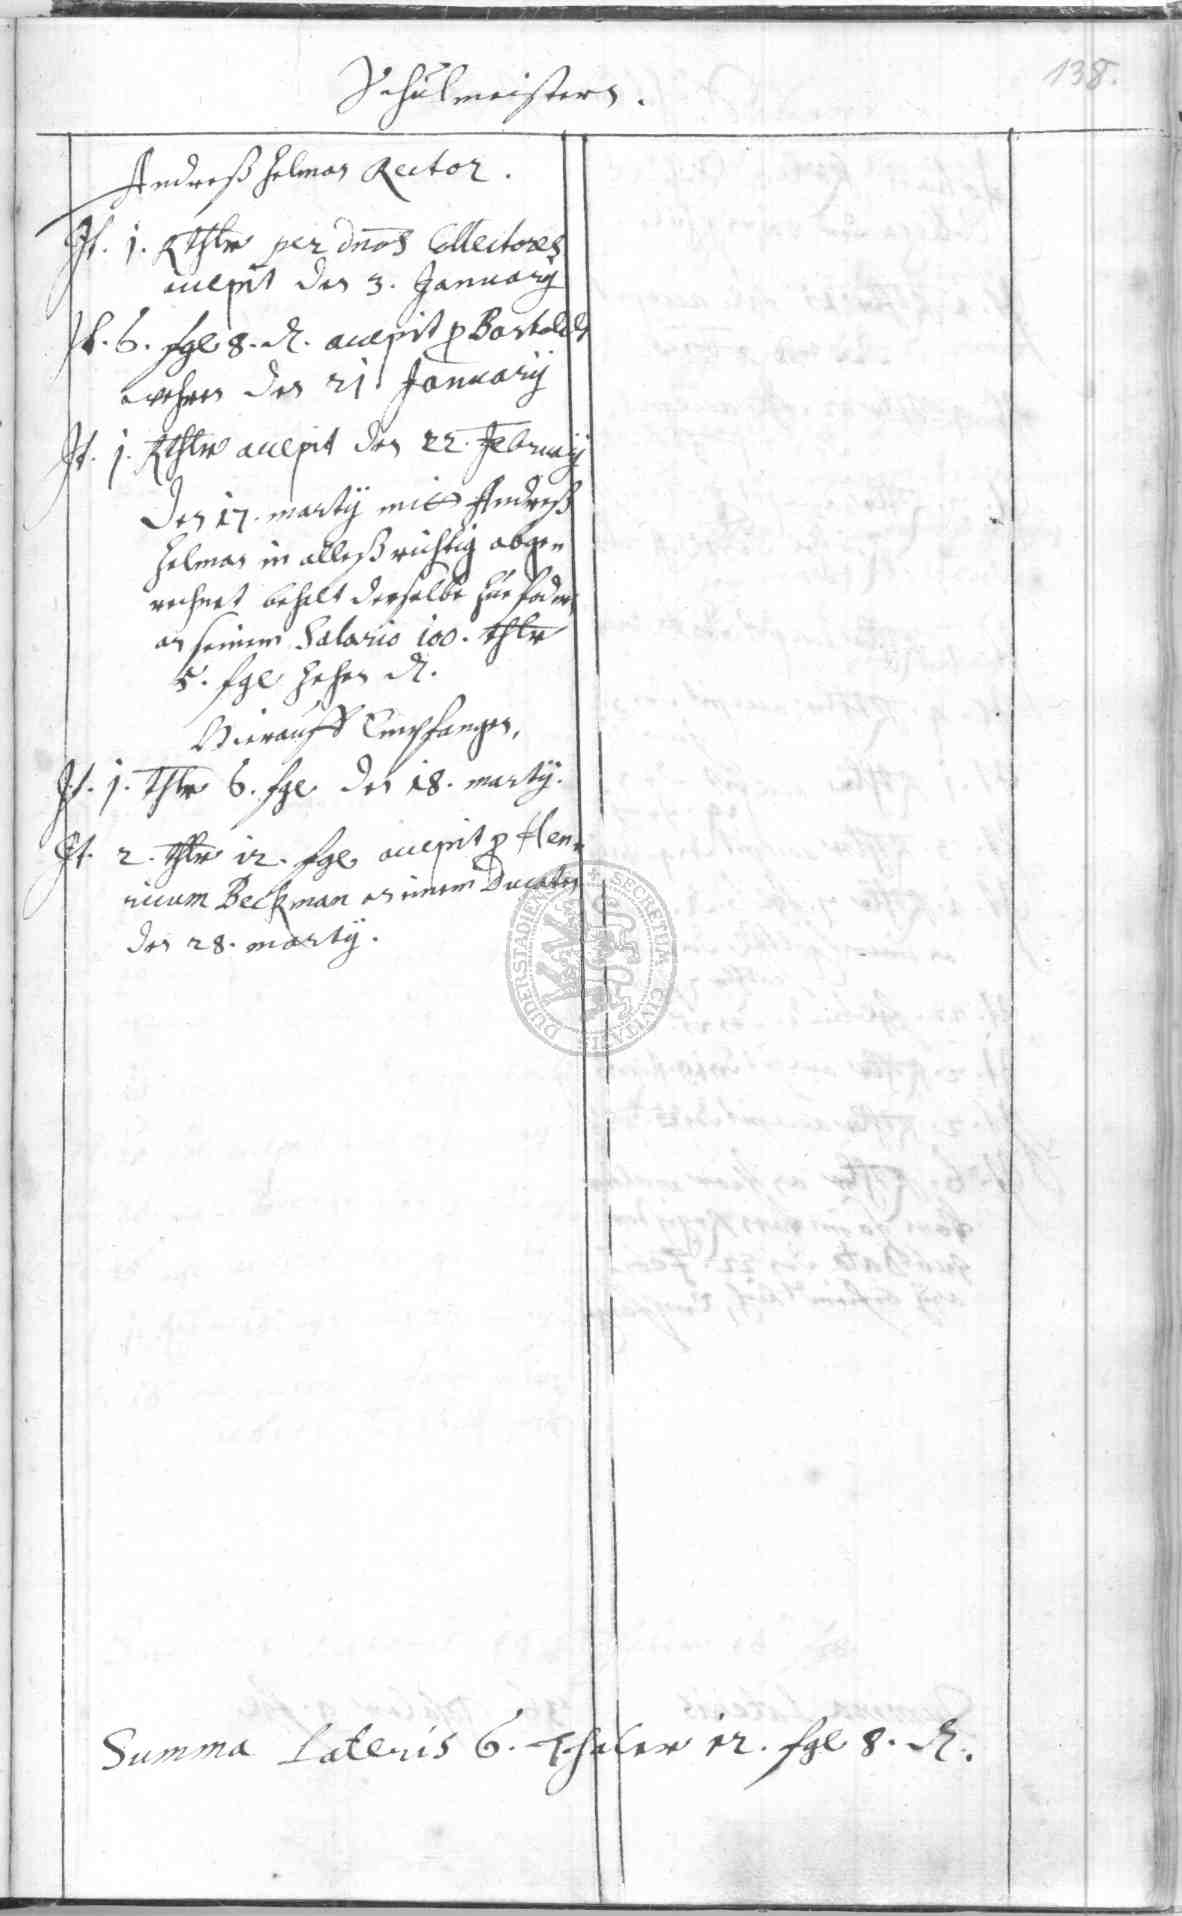 138.
Schulmeistern.
Andreß Helman Rector.
It. 1. Rthlr per dnos Collectores
accepit den 3. January
It. 6. sgl 8. d. accepit p Bartoldt
den 21. January
It. 1. Rthlr accepit den 22. February
Den 17. marty mitt Andreß
Helman in alleß richtig abge=
rechnet behelt derselbe zue fodern
an seinem Salario 100. thlr
5. sgl d.
Hierauff Empfangen,
It. 1. Thlr 6. sgl den 18. marty.
It. 2. thlr 12. sgl accepit p Hen=
ricum Beckman an einem Ducaten
den 28. marty.
SECRETUM CIVITATIS DUDERSTADIENSIS
Summa Lateris 6. Thaler 12. sgl 8. d.